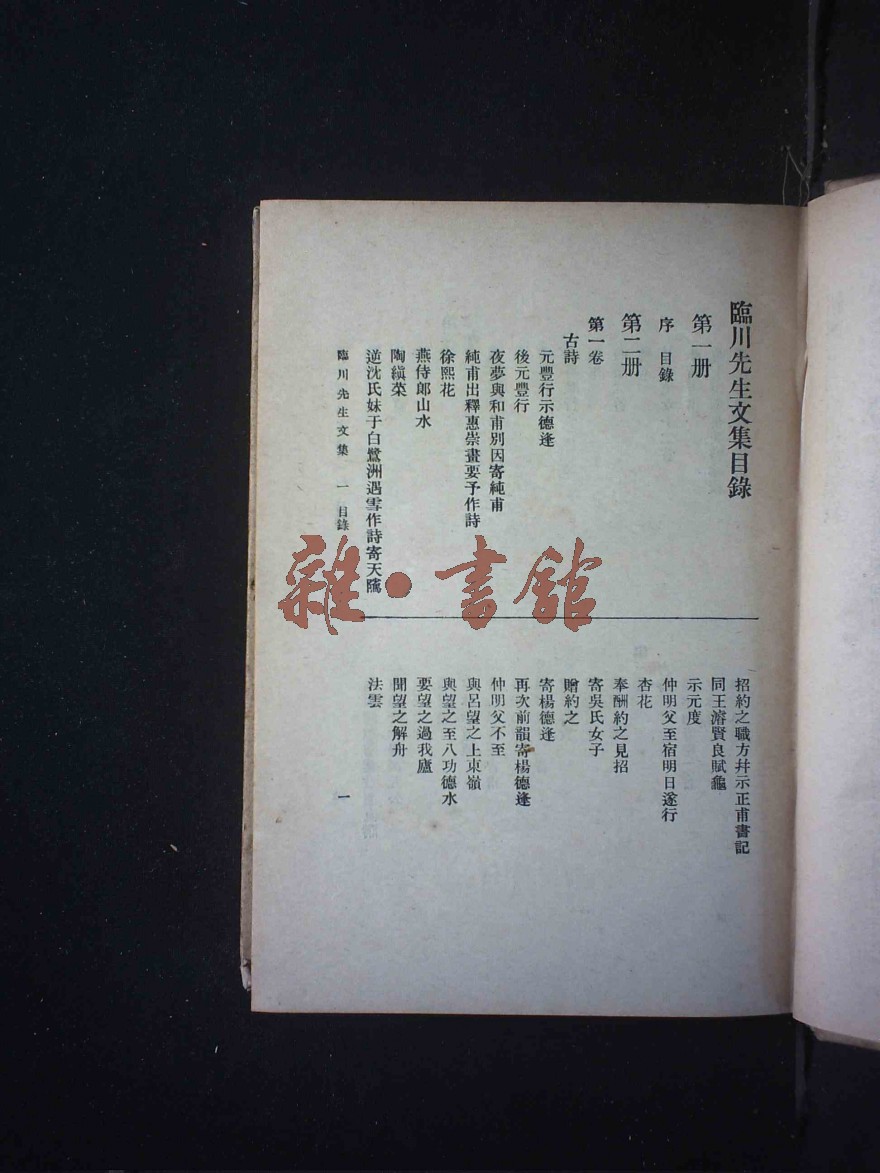 臨川先生文集目錄
第一册
序 目錄
第二册
第一卷
古詩
元豐行示德逢
後元豐行
夜夢與和甫別因寄純甫
純甫出釋惠崇畫要予作詩
徐熙花
燕侍郎山水
陶縝菜
逆沈氏妹于白鷺洲遇雪作詩寄天隲
招約之職方幷示正甫書記
同王濬賢良賦龜
示元度
仲明父至宿明日遂行
杏花
奉酬約之見招
寄吳氏女子
贈約之
寄楊德逢
再次前韻寄楊德逢
仲明父不至
與呂望之上東嶺
與望之至八功德水
要望之過我廬
聞望之解舟
法雲
臨川先生文集 一 目錄
一
雜·書館